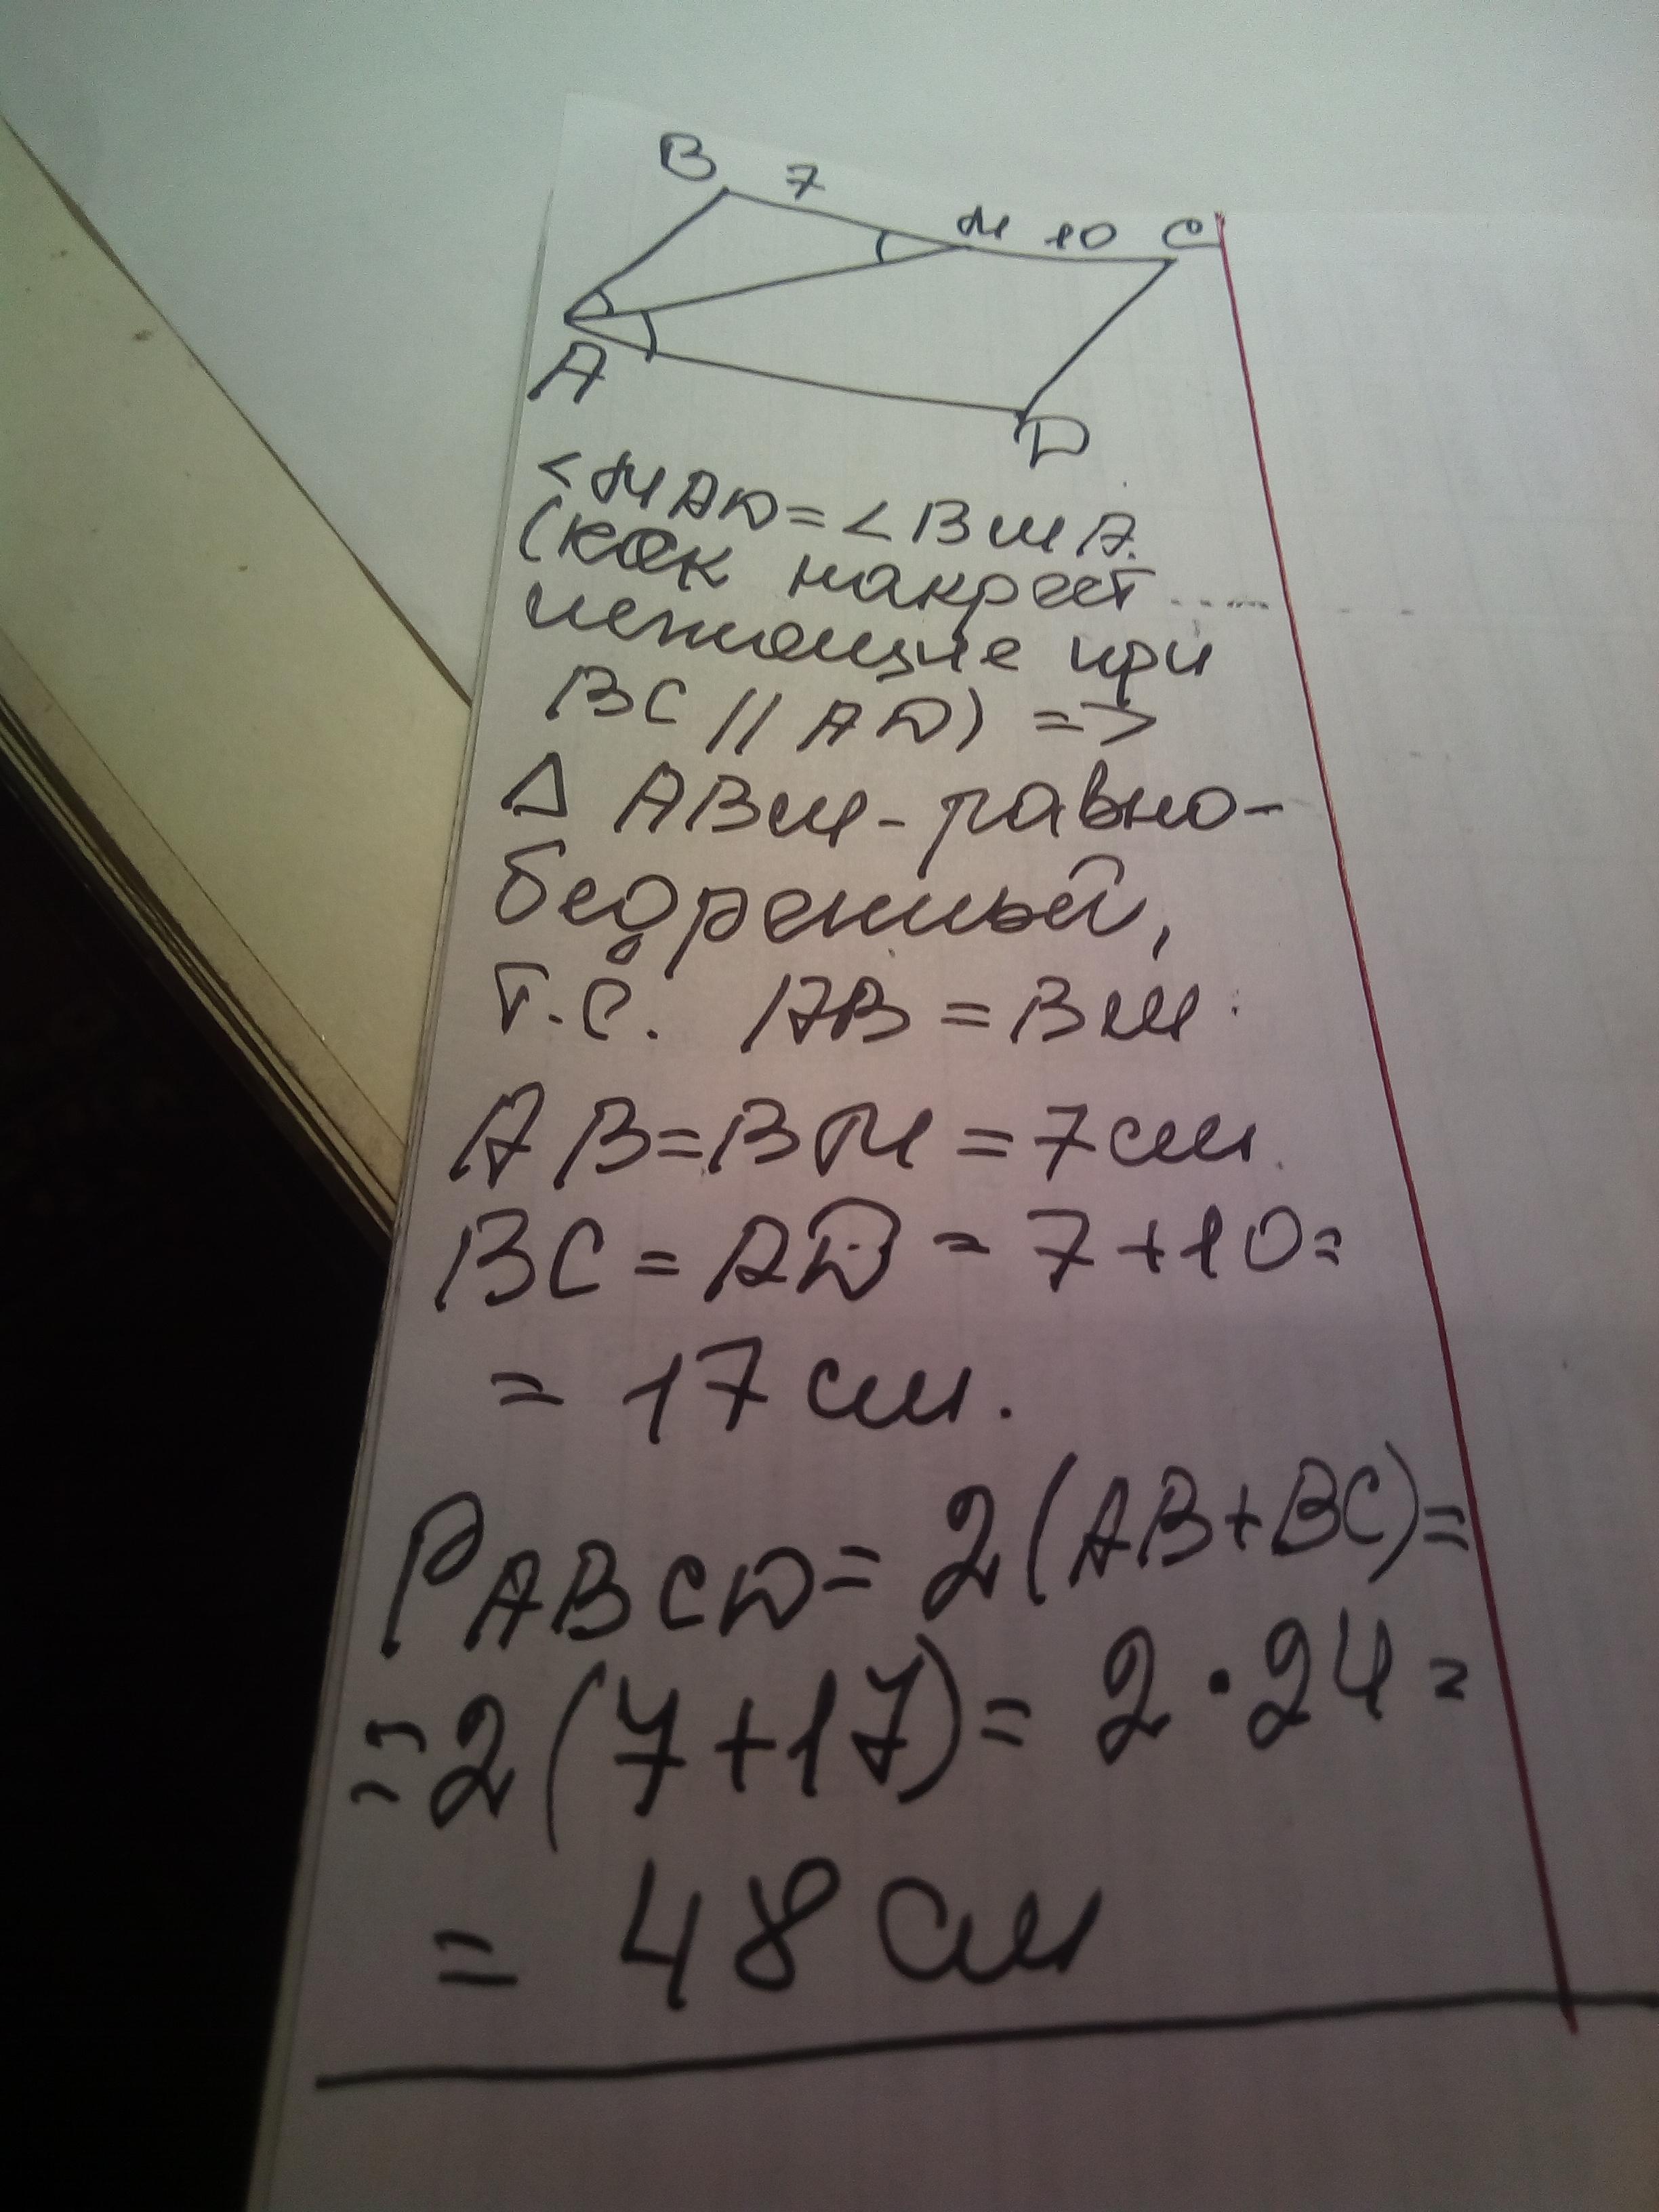 B 7 M 10 C
A
D
<MAD=<BMA.
(как накрест
лежащие при
BC || AD) =>
Δ ABM-равно-
бедренный,
т.е. AB = BM.
AB=BM=7см.
BC=AD=7+10=
= 17 см.
PABCD= 2(AB+BC)=
=2(7+17)= 2·24=
= 48 см